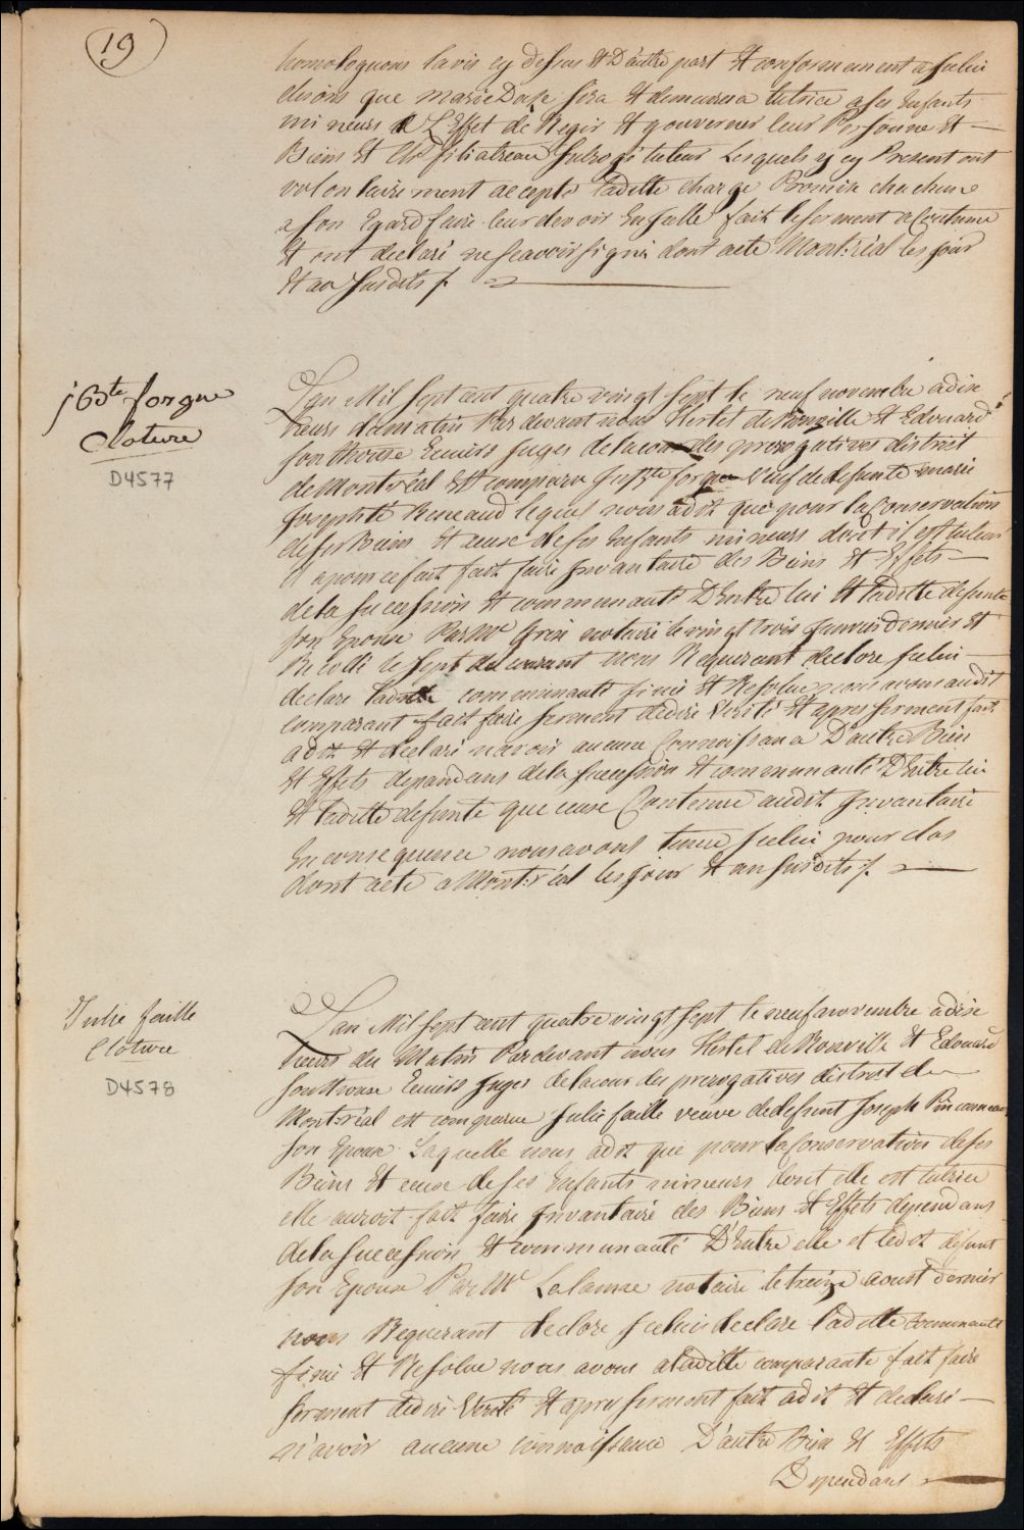 19
homologuons lavis cy dessus & D'autre part & conformement a Jcelui
disons que marie Dupe sera & demeurera tutrice a ses Enfants
mineurs a L'Effet de Regir & gouverner leur Personne &
Biens & filiatreau Subrogé tuteur Lesquels y cy Present ont
volontairement accepte laditte charge Promis chachune
a son Egard faire leur devoir En fait le serment a Coutumé
& ont declaré ne sçavoir signé dont acte Montréal les jour
& an susdits /.
jbste forgue
Cloture
D4577
Lan Mil sept cent quatre vingt sept le neuf novembre a dix
heurs du matin Par devant nous Hertel de Rouville & Edouard
Southouse Ecuiers Juges de la cour des prerogatives district
de Montréal Est comparu forgue veuf de defunte marie
Josephte Reneaud lequel nous a dit que pour la Conservation
de ses Biens & ceux de ses Enfants mineurs dont il est tuteur
il a pour ce fait fait faire Jnvantaire des Biens & Effets
de la succession & communauté D'Entre lui & laditte defunte
son Epouse Par Me Grisé notaire le vingt trois Janvier dernier &
Recollé le sept du courant nous Requerant declore Jcelui
declare laditte communauté finie & Resolue nous avons audit
comparant fait faire serment de dire Verité & apres serment fait
a dit & declaré navoir aucune Connoissance D'autre Bien
& Effets dependans de la succession & communauté D'Entre lui
& laditte defunte que ceux Contenue audit Jnvantaire
En consequence nous avons tenue Jcelui pour clos
dont acte a Montréal les jour & an susdits /.
Julie faille
Cloture
D4578
Lan Mil sept cent quatre vingt sept le neuf novembre a dix
heurs du Matin Par devant nous Hertel de Rouville & Edouard
Southouse Ecuiers Juges de la cour des prerogatives district de
Montréal est comparue Julie faille veuve de defunt Joseph Pinconneau
son Epoux Laquelle nous a dit que pour la Conservation de ses
Biens & ceux de ses Enfants mineurs dont elle est tutrice
elle auroit fait faire Jnvantaire des Biens & Effets dependans
de la succession & communauté D'Entre elle et ledit defunt
son Epoux Par Me Lalanne notaire le treize aoust dernier
nous Requerant declore Jcelui declare laditte communauté
finie & Resolue nous avons a laditte comparante fait faire
serment de dire Verité & apres serment fait a dit & declaré
n'avoir aucune connoissance D'autre Bien & Effets
Dependans